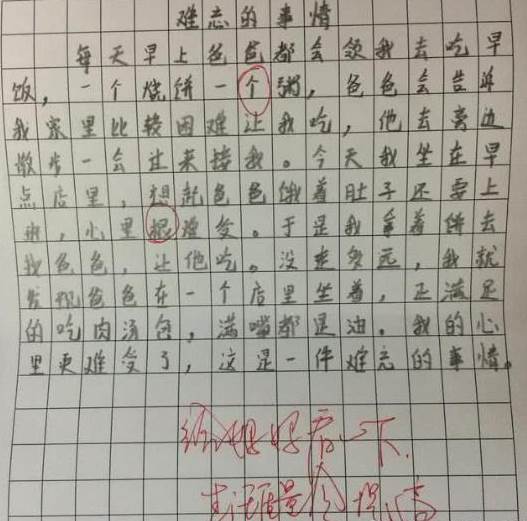 难忘的事情
每天早上爸爸都会领我去吃早
饭，一个烧饼一个粥，爸爸会告诉
我家里比较困难让我吃，他去旁边
散步一会过来接我。今天我坐在早
点店里，想起爸爸饿着肚子还要上
班，心里很难受。于是我拿着饼去
找爸爸，让他吃。没走多远，我就
发现爸爸在一个店里坐着，正满足
的吃肉汤包，满嘴都是油。我的心
里更难受了，这是一件难忘的事情。
给妈妈看一下，
生活质量会提高